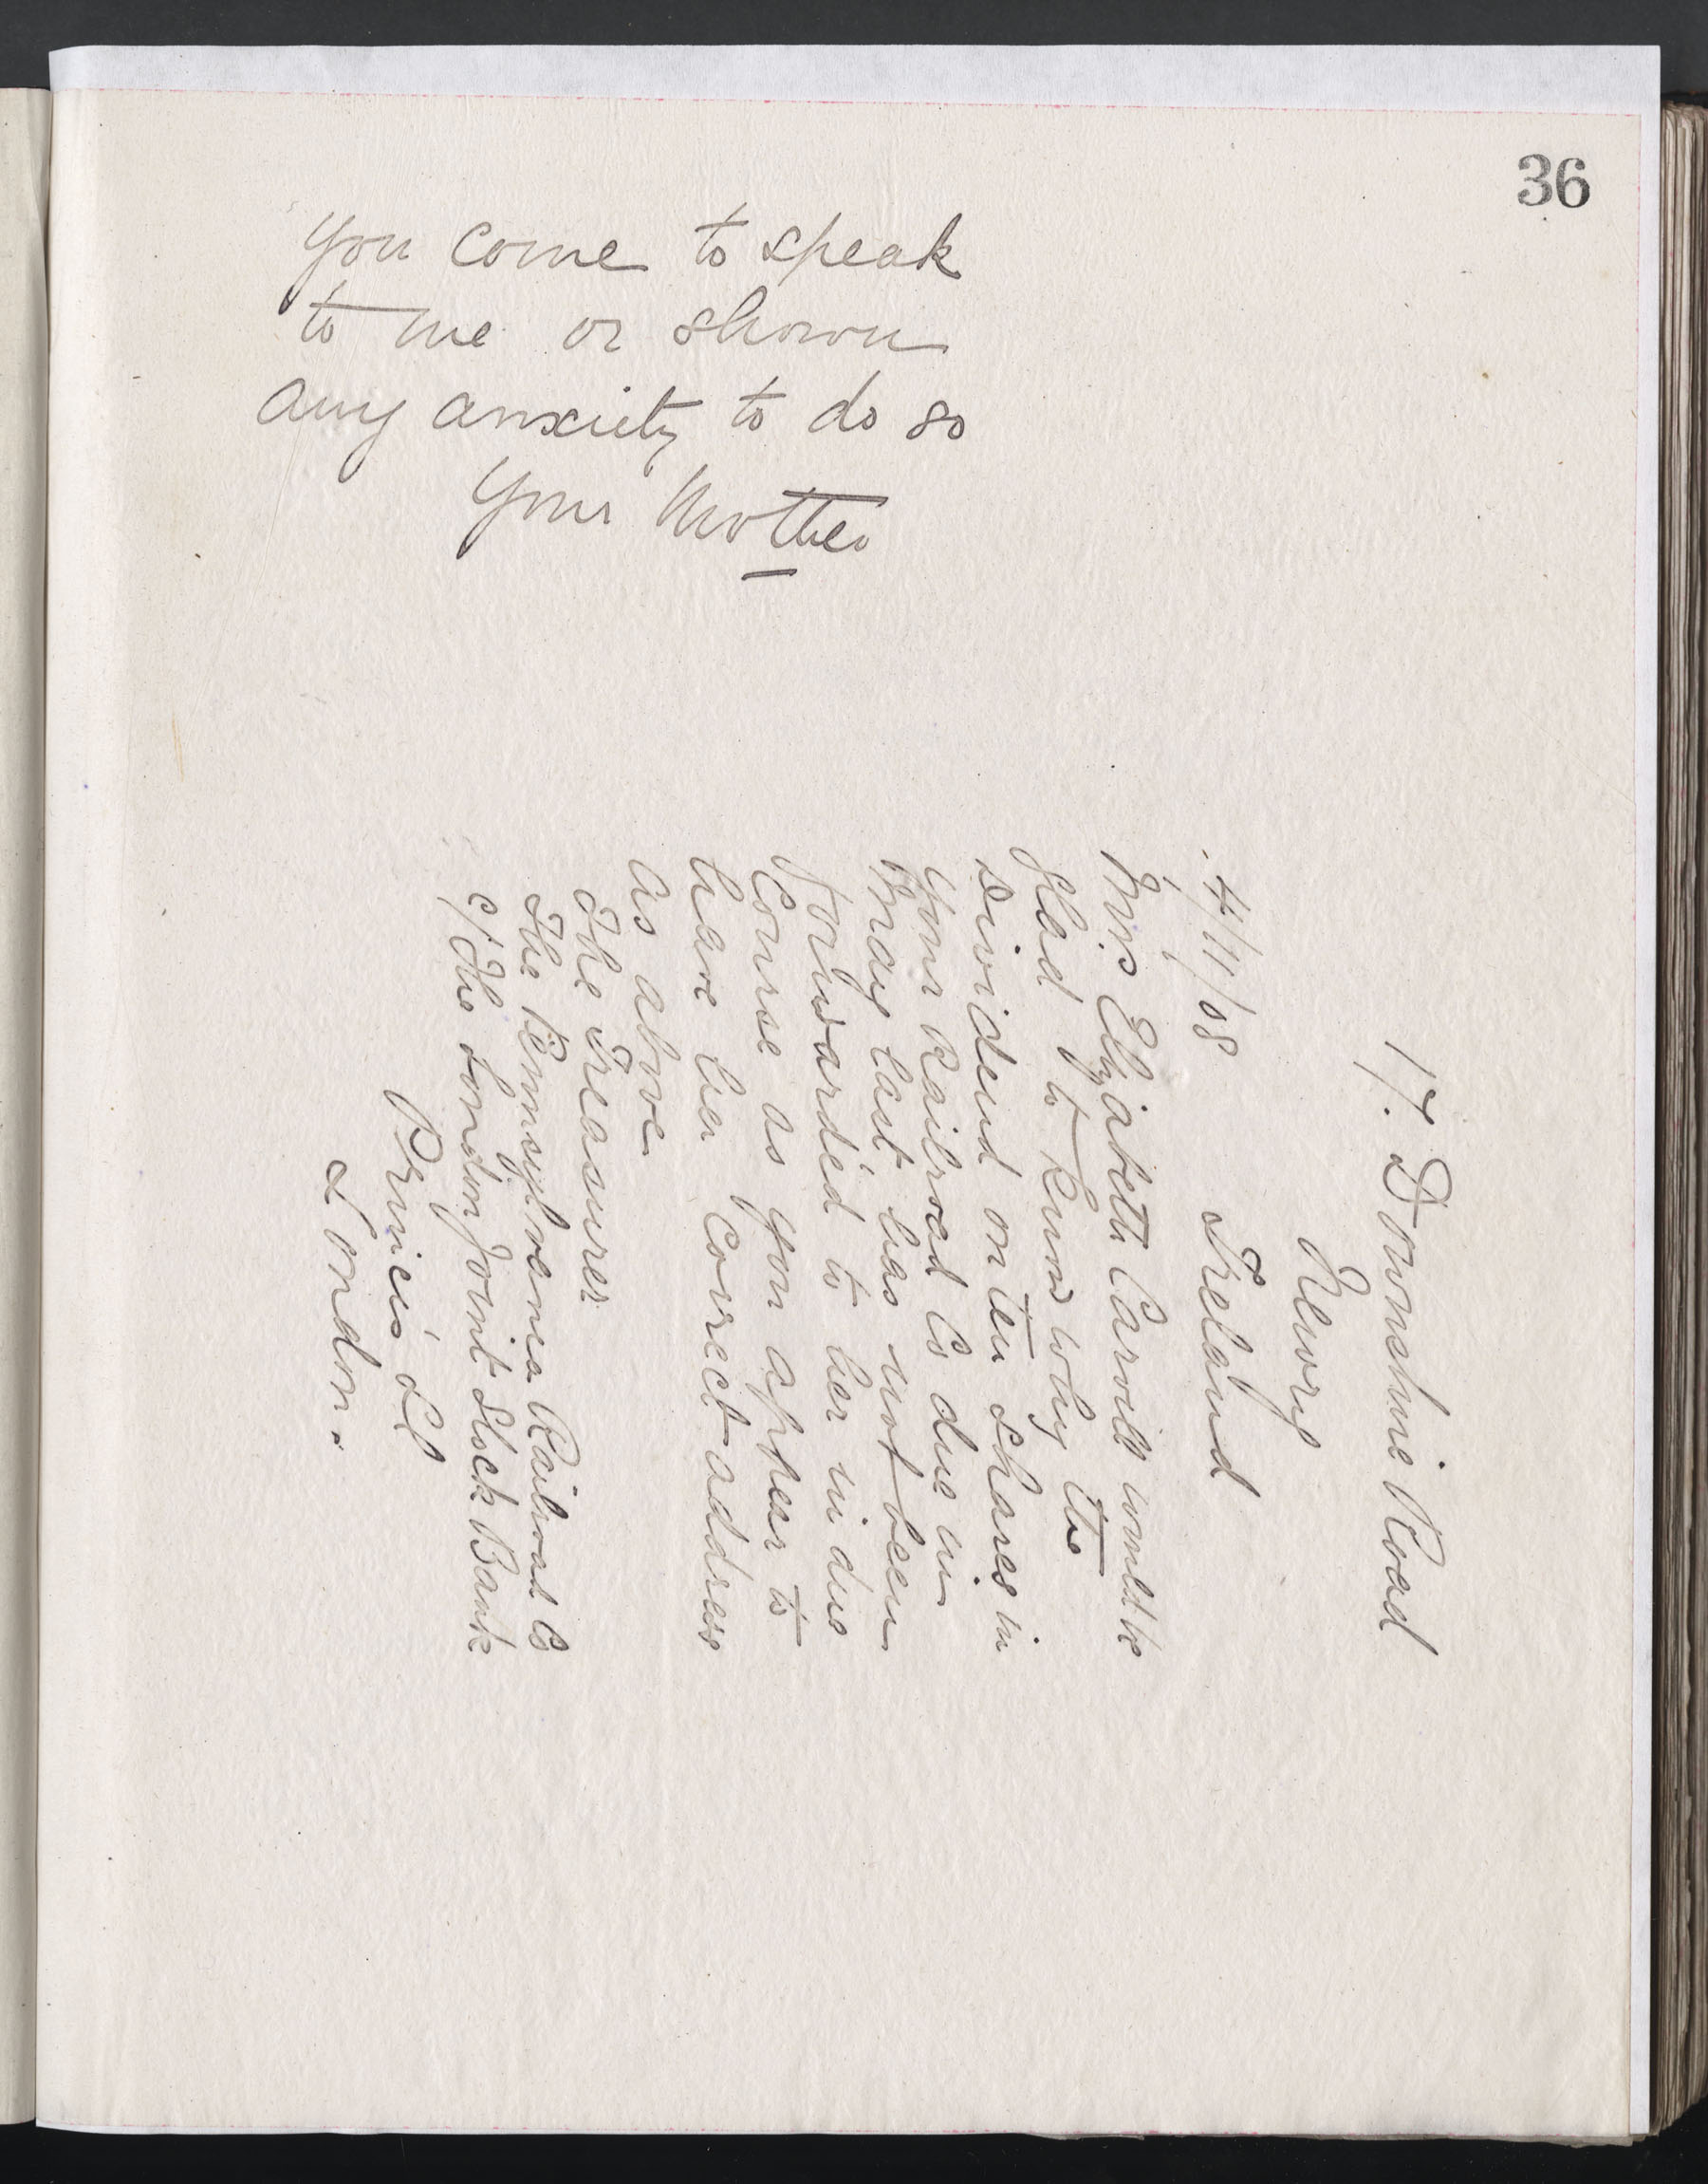 36
you come to speak
to me or shown
any anxiety to do so
Your Mother
17. Downshire Road
Newry
Ireland
4/11/08
Mrs Elizabeth Carvill would be
glad to know why the
dividend on ten shares in
your Railroad Co due in
May last has not been
forwarded to her in due
Course as you appear to
have her Correct address
as above
The Treasurer
The Pennsylvania Railroad Co
c/ The London Joint Stock Bank
Princes St
London.